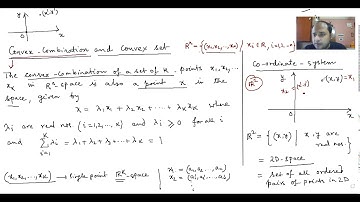 y
(x,y)
0
x
Convex-Combination and convex set
R^n = {(x₁,x₂,...,xₙ) / xᵢ ∈ R,
The convex-combination of a set of K-points x₁,x₂,...
xₖ in Rⁿ-space is also a point x in the
space, given by
x = λ₁x₁ + λ₂x₂ + ... + λₖxₖ where
λᵢ are real nos. (i=1,2,...,K) and λᵢ ≥ 0 for all i
and Σλᵢ = λ₁+λ₂+λ₃+...+λₖ = 1
i=1
K
single point
-space
Co-ordinate-System
R²
y
x₂
0
x
R² = {(x,y) | x,y are real nos.}
= 2D-space
= set of all ordered
pairs of points in 2D